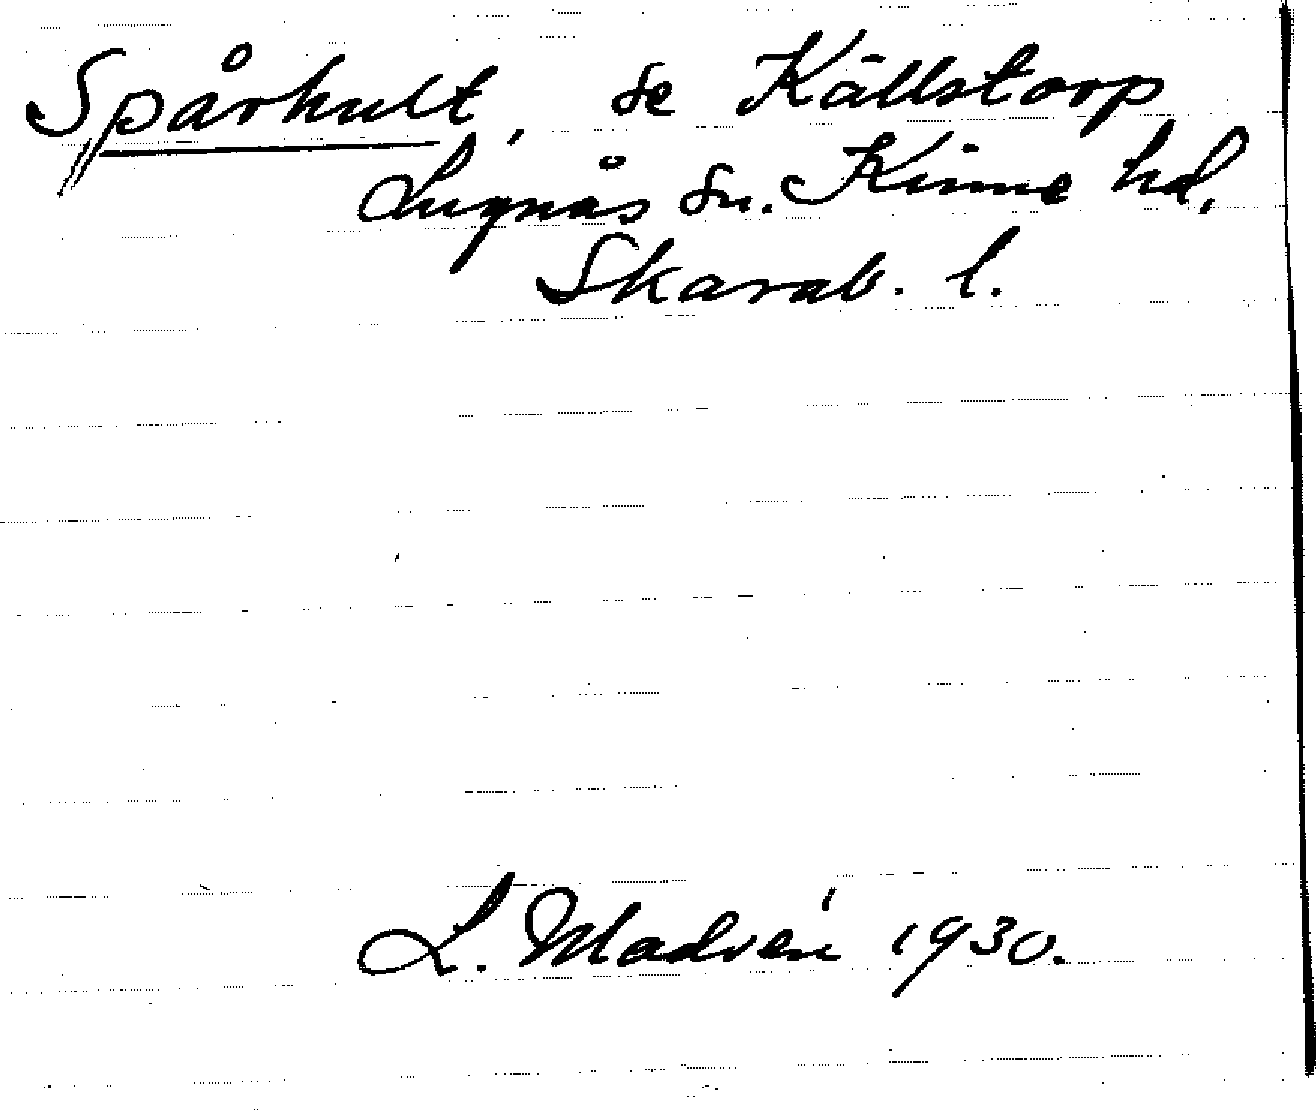 Spårhult, se Källstorp
Lugnås sn. Kinne hd,
Skarab. l.
L. Madvén 1930.